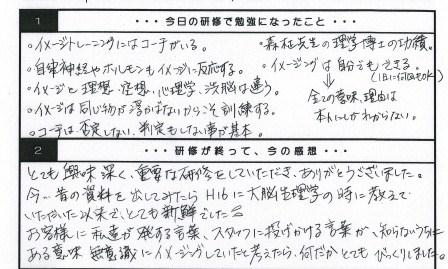 1 ・・・今日の研修で勉強になったこと・・・
。イメージトレーニングにはコーチがいる。
。自律神経やホルモンもイメージに反応する。
。イメージと理想、空想、心理学、洗脳は違う。
。イメージは同じ物が浮かばないからこそ訓練する。
。コーチは否定しない、判定もしない事が基本。
・森柾先生の理学博士の功績。
・イメージングは自分でもできる。
(1日に何回もOK)
全ての意味、理由は
本人にしかわからない。
2 ・・・研修が終って、今の感想・・・
とても興味深く、重要な研修をしていただき、ありがとうございました。
今、昔の資料を出してみたら H16に大脳生理学の時に教えて
いただいた以来で、とても新鮮でした
お客様に私達が発する言葉、スタッフに投げかける言葉が、知らないうちに
ある意味 無意識にイメージングしていたと考えたら、何だかとてもびっくりしました。